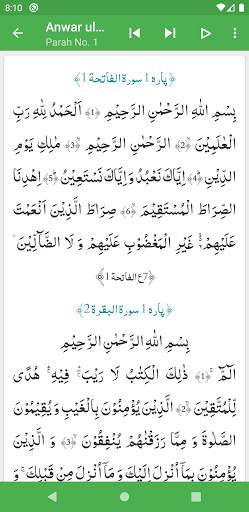 8:10
Anwar ul...
Parah No. 1
﴿پاره 1 سورة الفاتحة 1﴾
بِسْمِ اللّٰهِ الرَّحْمٰنِ الرَّحِيْمِ ﴿1﴾ اَلْحَمْدُ لِلّٰهِ رَبِّ
الْعٰلَمِيْنَ ﴿2﴾ الرَّحْمٰنِ الرَّحِيْمِ ﴿3﴾ مٰلِكِ يَوْمِ
الدِّيْنِ ﴿4﴾ اِيَّاكَ نَعْبُدُ وَ اِيَّاكَ نَسْتَعِيْنُ ﴿5﴾ اِهْدِنَا
الصِّرَاطَ الْمُسْتَقِيْمَ ﴿6﴾ صِرَاطَ الَّذِيْنَ اَنْعَمْتَ
عَلَيْهِمْ غَيْرِ الْمَغْضُوْبِ عَلَيْهِمْ وَ لَا الضَّآلِّيْنَ
﴿7ع الفاتحة 1﴾
﴿پاره 1 سورة البقرة 2﴾
بِسْمِ اللّٰهِ الرَّحْمٰنِ الرَّحِيْمِ
الٓمّٓ ﴿1﴾ ذٰلِكَ الْكِتٰبُ لَا رَيْبَ فِيْهِ هُدًى
لِّلْمُتَّقِيْنَ ﴿2﴾ الَّذِيْنَ يُؤْمِنُوْنَ بِالْغَيْبِ وَ يُقِيْمُوْنَ
الصَّلٰوةَ وَ مِمَّا رَزَقْنٰهُمْ يُنْفِقُوْنَ ﴿3﴾ وَ الَّذِيْنَ
يُؤْمِنُوْنَ بِمَاۤ اُنْزِلَ اِلَيْكَ وَ مَاۤ اُنْزِلَ مِنْ قَبْلِكَ وَ